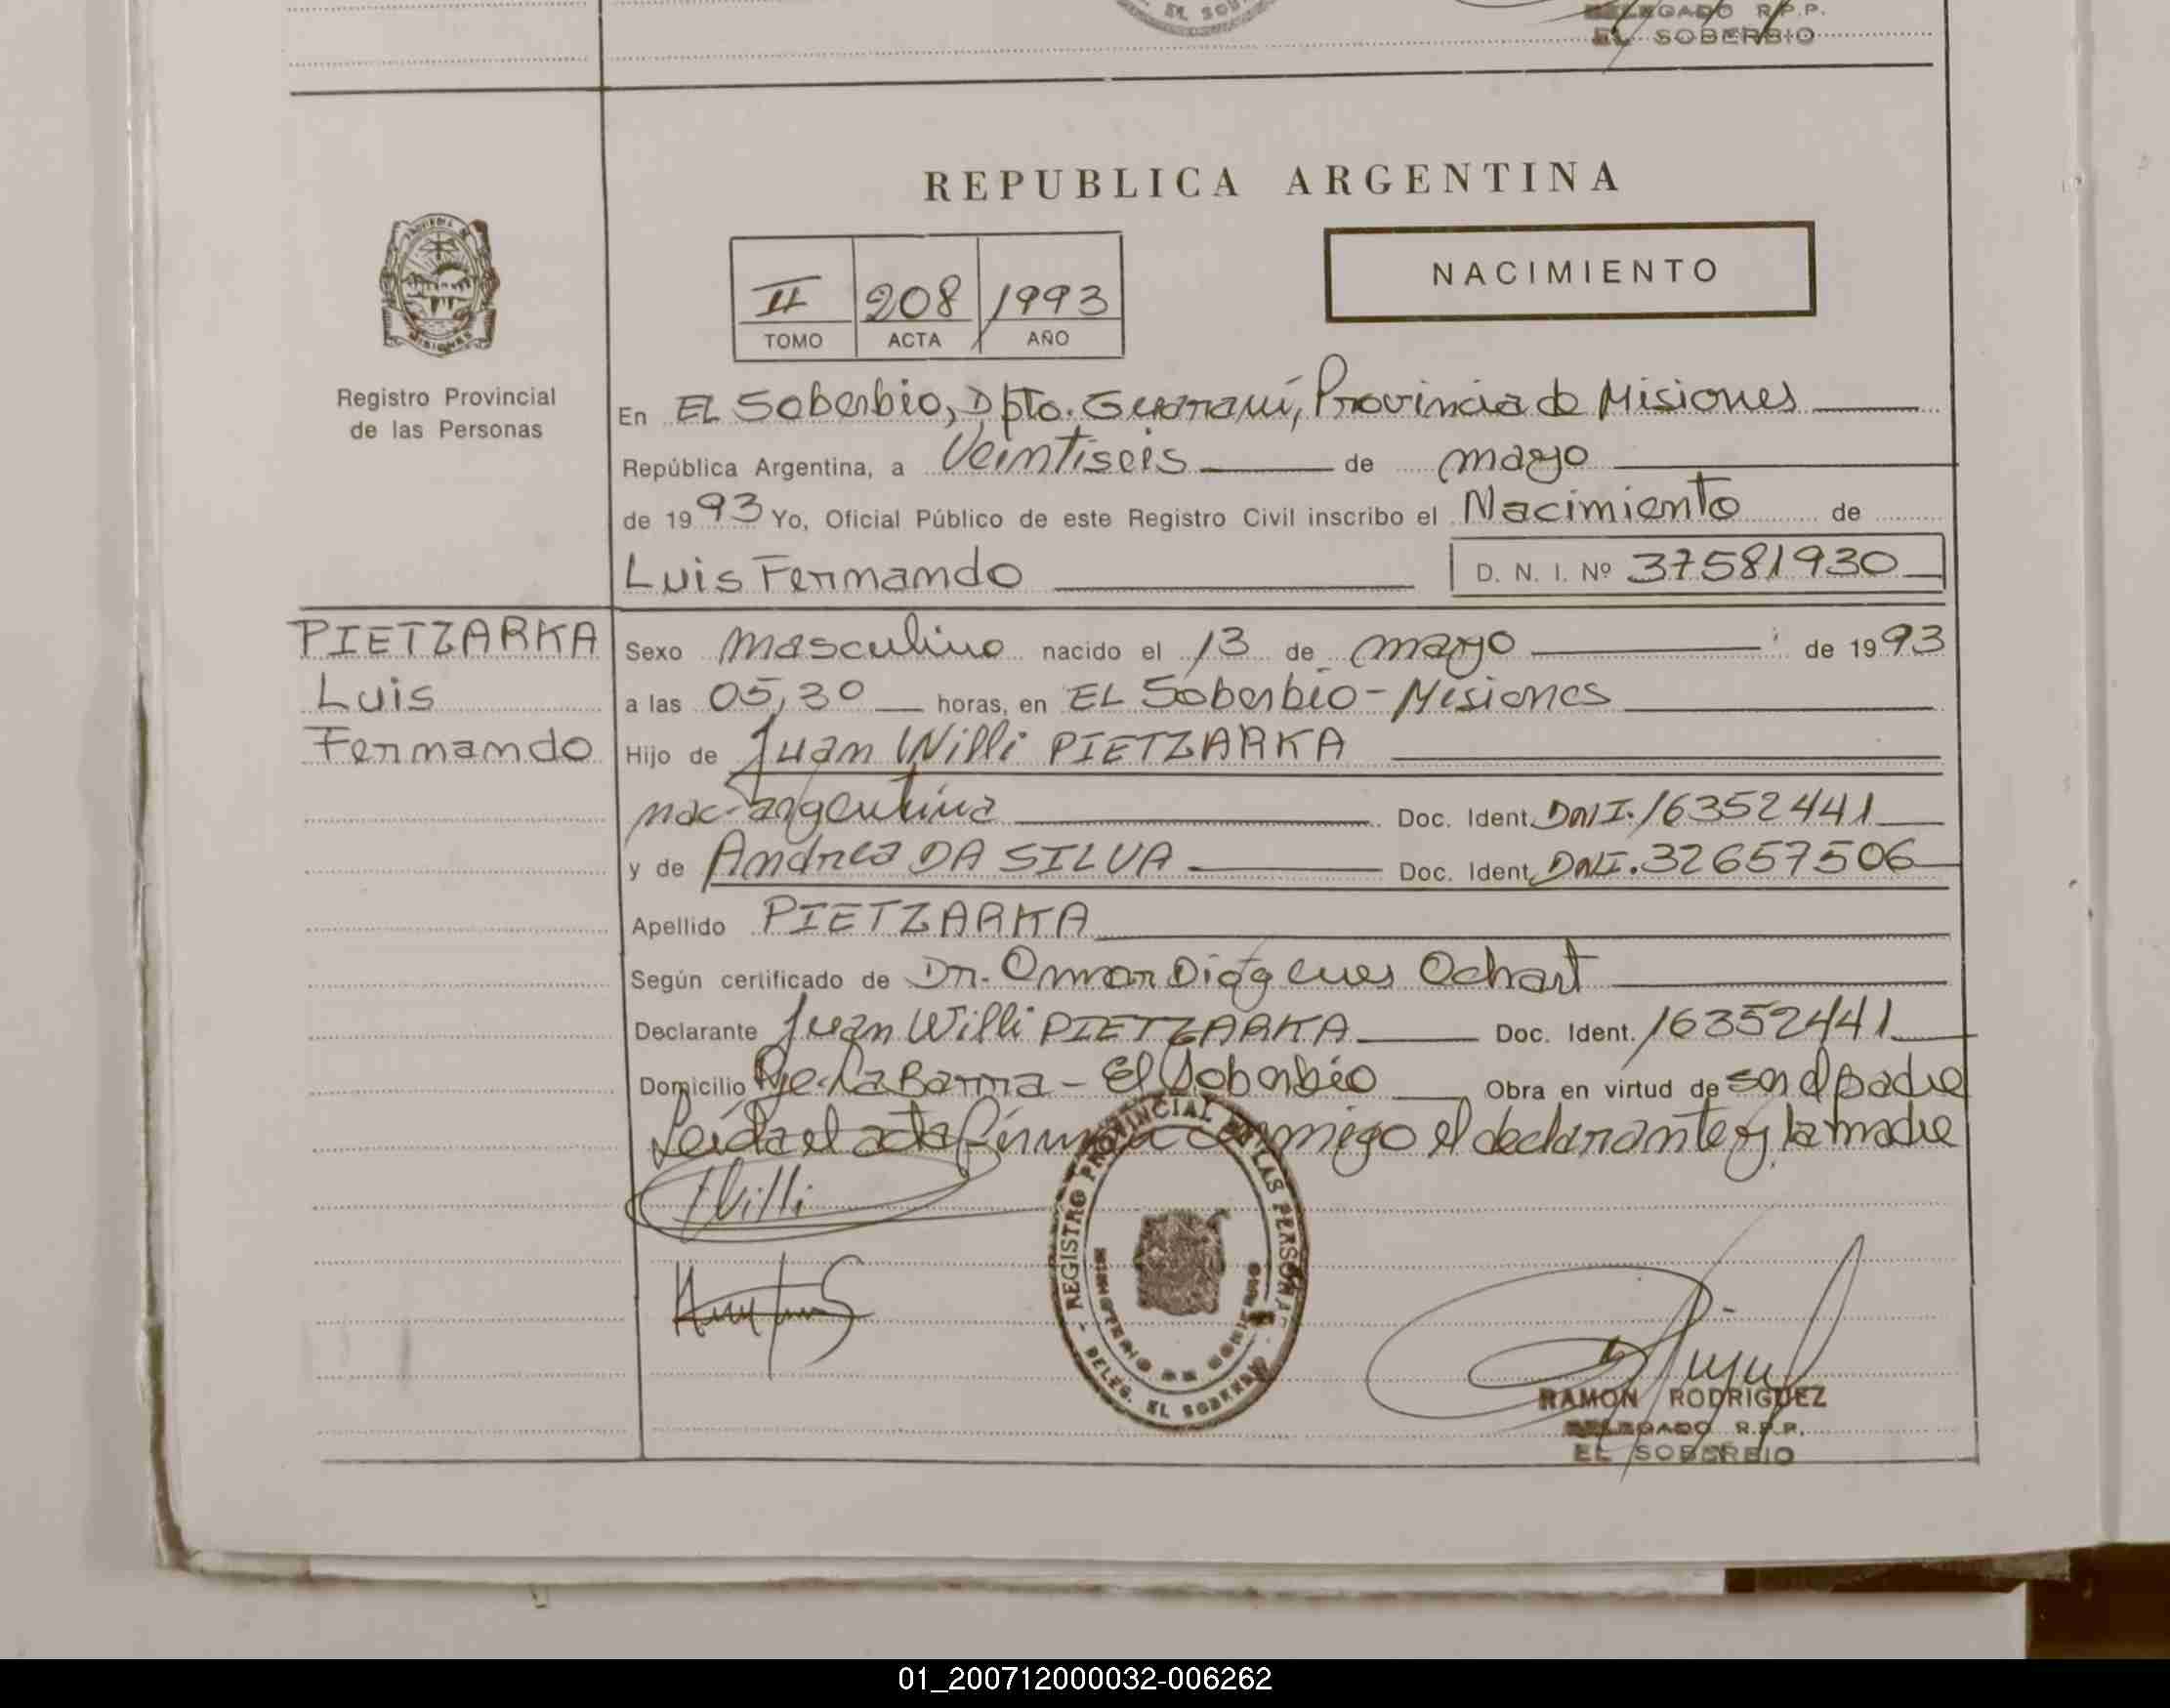 EL SOB
DELEGADO R.P.P.
EL SOBERBIO
REPUBLICA ARGENTINA
NACIMIENTO
II 208 1993
TOMO ACTA AÑO
PROVINCIA
MISIONES
Registro Provincial
de las Personas
En EL Soberbio, Dpto. Guaraní, Provincia de Misiones
República Argentina, a Veintiseis de mayo
de 1993 Yo, Oficial Público de este Registro Civil inscribo el Nacimiento de
Luis Fernando D. N. I. Nº 37581930
PIETZARKA
Luis
Fernando
Sexo Masculino nacido el 13 de mayo de 1993
a las 05,30 horas, en EL Soberbio - Misiones
Hijo de Juan Willi PIETZARKA
nac. argentina Doc. Ident. DNI. 16352441
y de Andrea DA SILVA Doc. Ident. DNI. 32657506
Apellido PIETZARKA
Según certificado de Dr. Omar Diógenes Ochart
Declarante Juan Willi PIETZARKA Doc. Ident. 16352441
Domicilio Pje. La Barra - El Soberbio Obra en virtud de ser el padre
Leída el acta firman conmigo el declarante y la madre
Willi
REGISTRO PROVINCIAL DE LAS PERSONAS
MINISTERIO DE GOBIERNO
- DELEG. EL SOBERBIO -
RAMON RODRIGUEZ
DELEGADO R.P.P.
EL SOBERBIO
01_200712000032-006262